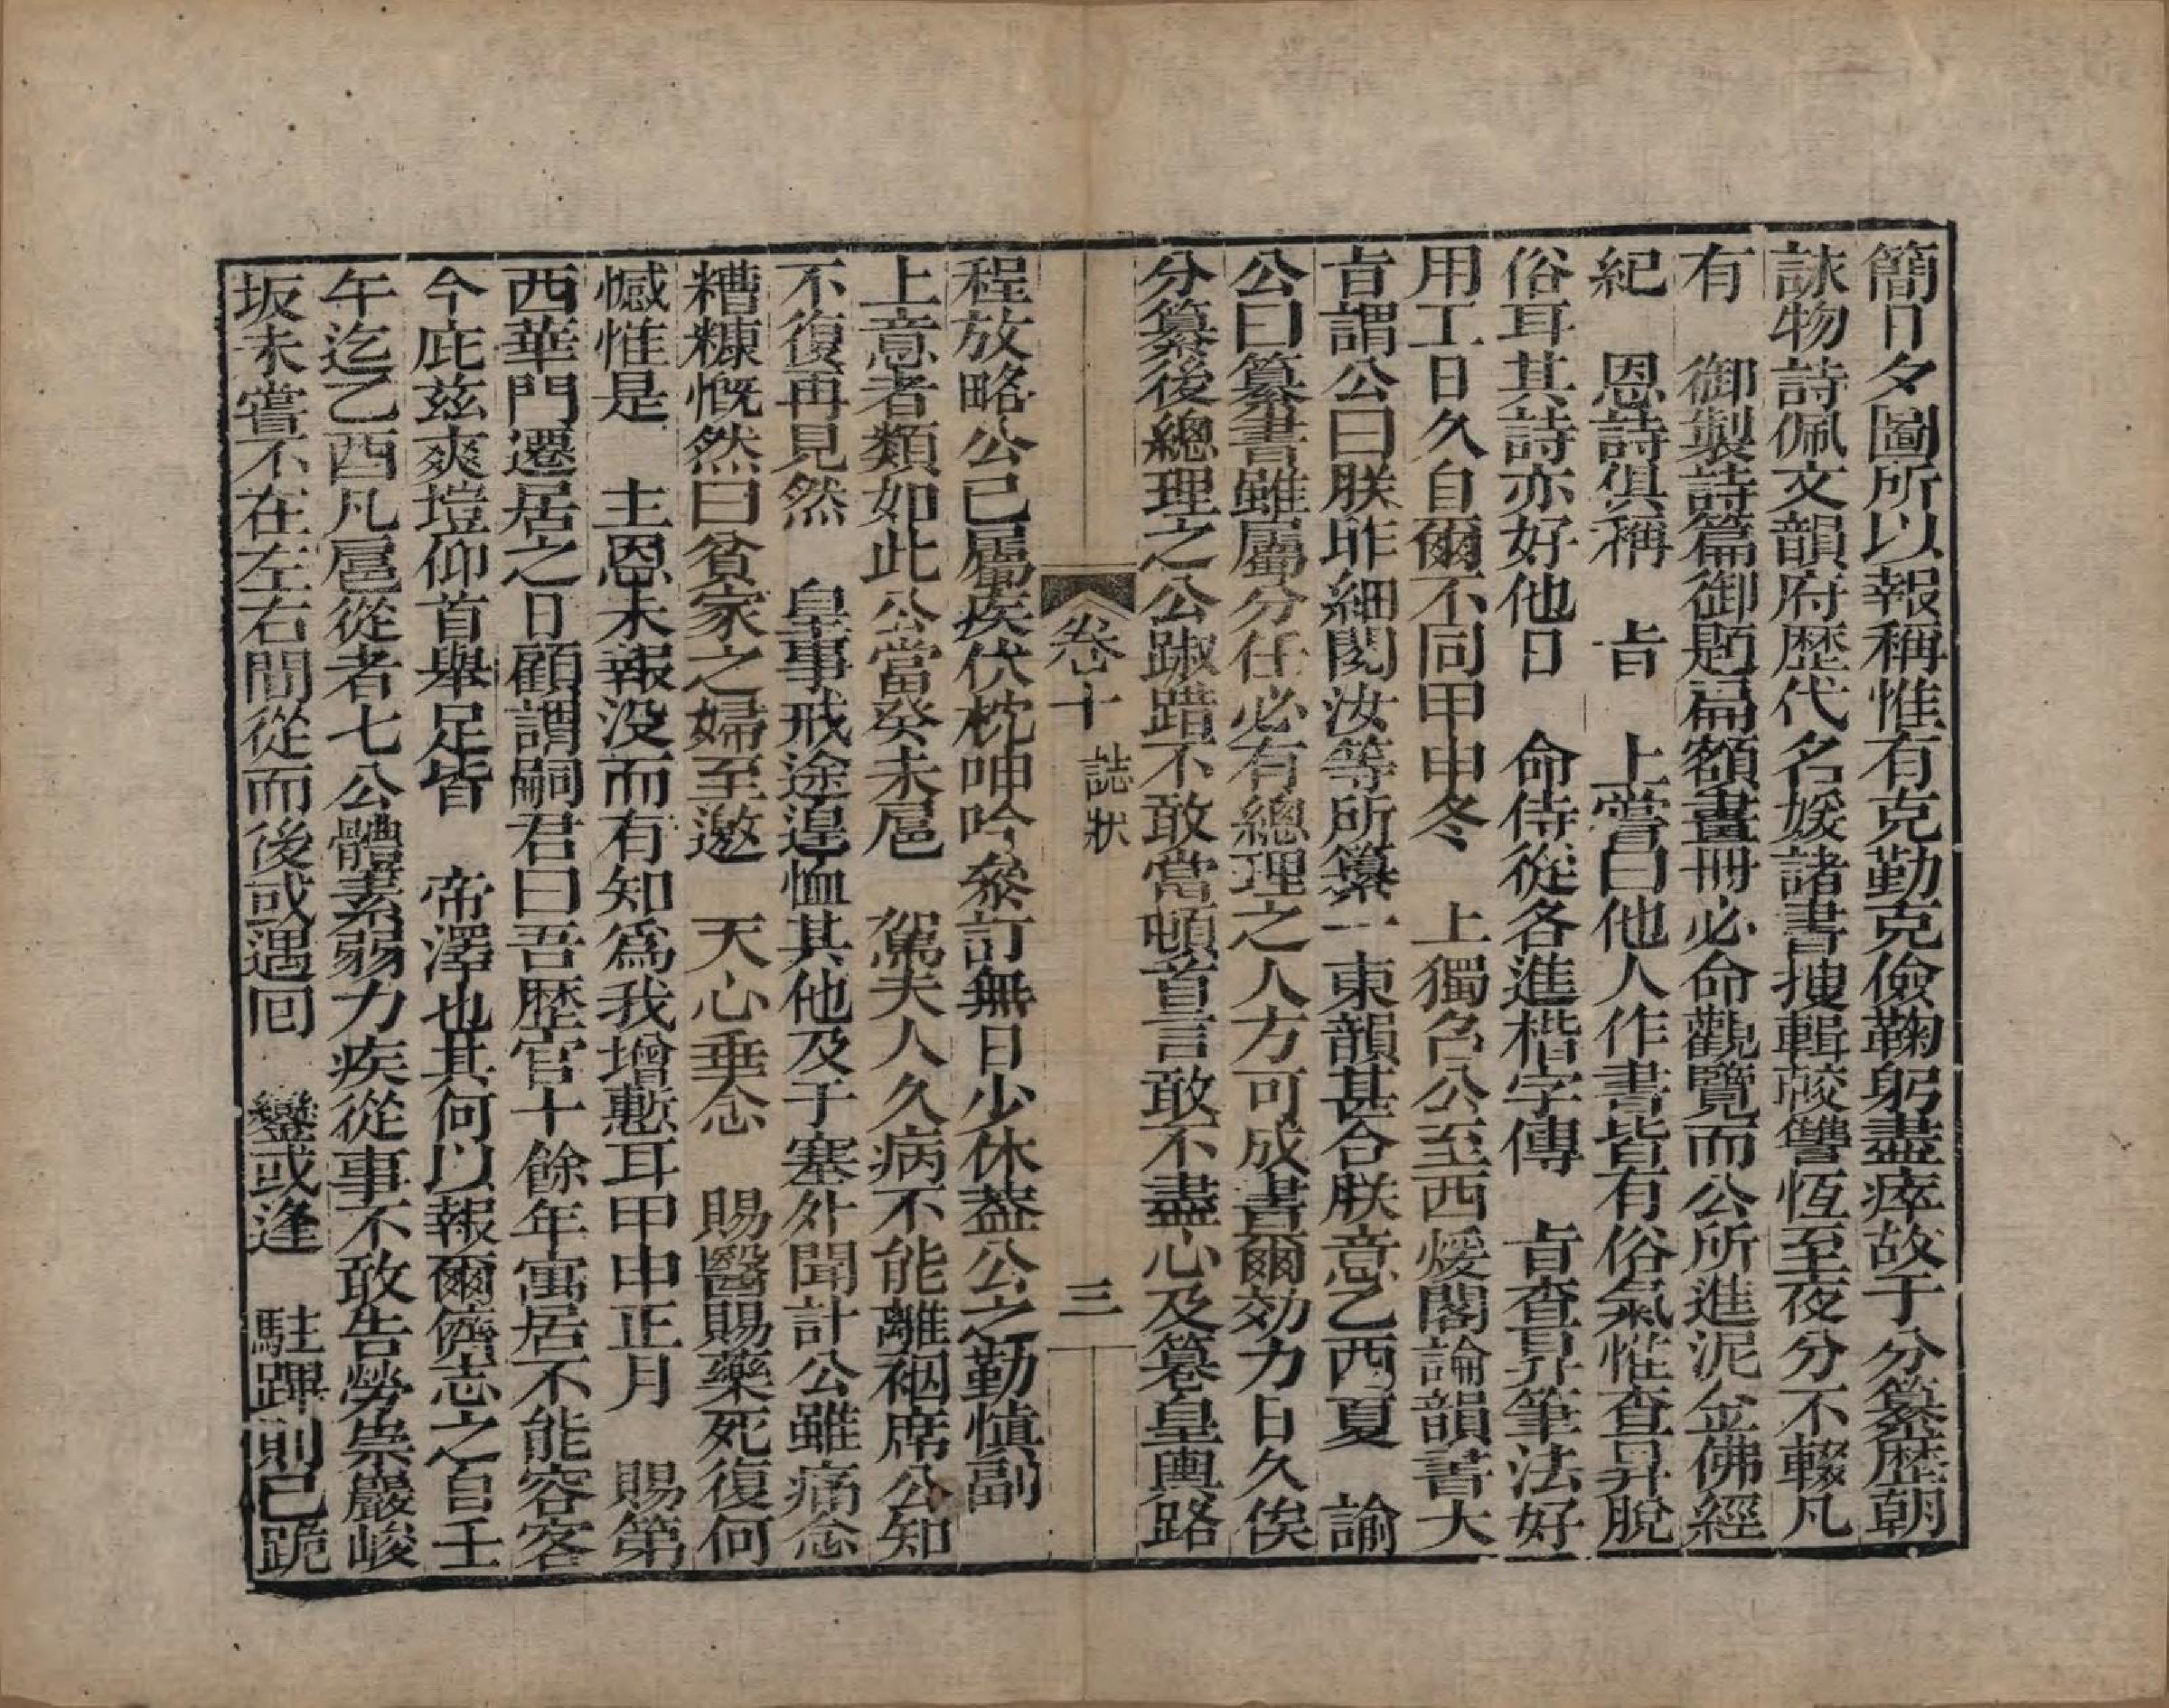 簡日夕圖所以報稱惟有克勤克儉鞠躬盡瘁故于分纂歷朝
詠物詩佩文韻府歷代名媛諸書搜輯較讐恆至夜分不輟凡
有　御製詩篇御題扁額畫冊必命觀覽而公所進泥金佛經
紀　恩詩俱稱　旨　上嘗曰他人作書皆有俗氣惟查昇脫
俗耳其詩亦好他日　命侍從各進楷字傳　旨查昇筆法好
用工日久自爾不同甲申冬　上獨召公至西煖閣論韻書大
旨謂公曰朕昨細閱汝等所纂一東韻甚合朕意乙酉夏　諭
公曰纂書雖屬分任必有總理之人方可成書爾効力日久俟
分纂後總理之公踧踖不敢當頓首言敢不盡心及篹皇輿路
卷十　誌狀　三
程放略公已屬疾伏枕呻吟參訂無日少休葢公之勤慎副
上意者類如此公當癸未扈　駕夫人久病不能離裀席公知
不復再見然　皇事戒途遑恤其他及于塞外聞計公雖痛念
糟糠慨然曰貧家之婦至邀　天心垂念　賜醫賜藥死復何
憾惟是　主恩未報没而有知爲我增慙耳甲申正月　賜第
西華門遷居之日顧謂嗣君曰吾歷官十餘年寓居不能容客
今庇茲爽塏仰首舉足皆　帝澤也其何以報爾儕志之自壬
午迄乙酉凡扈從者七公體素弱力疾從事不敢告勞祟巖峻
坂未嘗不在左右間從而後或遇回　鑾或逢　駐蹕則已跪